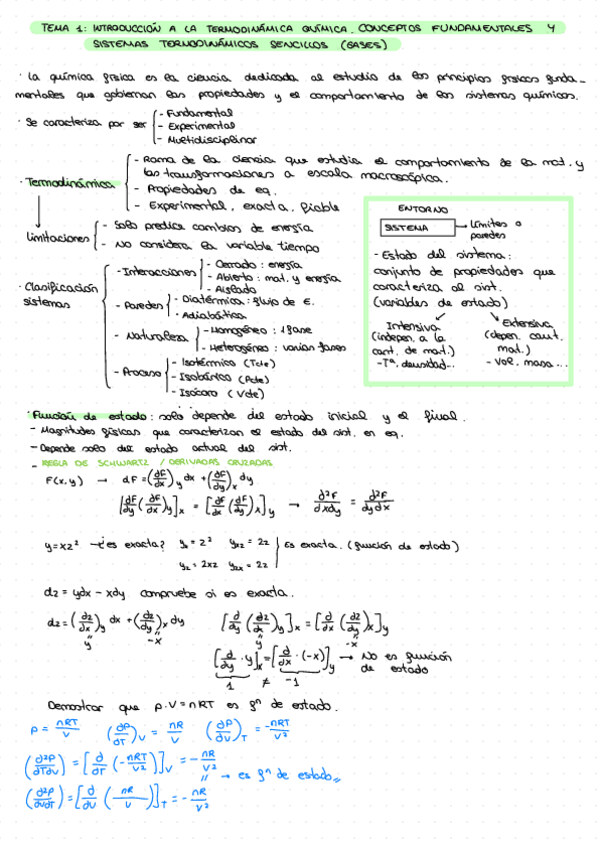 TEMA 1: INTRODUCCIÓN A LA TERMODINÁMICA QUÍMICA. CONCEPTOS FUNDAMENTALES Y
SISTEMAS TERMODINÁMICOS SENCILLOS (GASES)
· La química física es la ciencia dedicada al estudio de los principios físicos funda-
mentales que gobiernan las propiedades y el comportamiento de los sistemas químicos.
· Se caracteriza por ser
- Fundamental
- Experimental
- Multidisciplinar
· Termodinámica
- Rama de la ciencia que estudia el comportamiento de la mat. y
las transformaciones a escala macroscópica.
- Propiedades de eq.
- Experimental, exacta, fiable
Limitaciones
- Solo predice cambios de energía
- No considera la variable tiempo
· Clasificación
sistemas
- Interacciones
- Cerrado: energía
- Abierto: mat. y energía
- Aislado
- Paredes
- Diatérmica: flujo de E.
- Adiabática
- Naturaleza
- Homogéneo: 1 fase
- Heterogéneo: varias fases
- Proceso
- Isotérmico (Tcte)
- Isobárico (Pcte)
- Isocoro (Vcte)
ENTORNO
SISTEMA → Límites o
paredes
- Estado del sistema:
conjunto de propiedades que
caracteriza al sist.
(variables de estado)
Intensiva
(indepen. a la
cant. de mat.)
- Tª, densidad...
Extensiva
(depen. cant.
mat.)
- Vol, masa...
· Función de estado: solo depende del estado inicial y el final.
- Magnitudes físicas que caracterizan el estado del sist. en eq.
- Depende solo del estado actual del sist.
- REGLA DE SCHWARTZ / DERIVADAS CRUZADAS
F(x,y) → dF = (dF/dx)y dx + (dF/dy)x dy
[dF/dy (dF/dx)y]x = [dF/dx (dF/dy)x]y → d²F/dxdy = d²F/dydx
y=xz² → ¿es exacta? yx = z² yxz = 2z Es exacta. (función de estado)
yz = 2xz yzx = 2z
dz = ydx - xdy compruebe si es exacta.
dz = (dz/dx)y dx + (dz/dy)x dy [d/dy (dz/dx)y]x = [d/dx (dz/dy)x]y
y -x y -x
[d/dy · y]x = [d/dx · (-x)]y → No es función
de estado
1 ≠ -1
Demostrar que P·V = nRT es fⁿ de estado.
P = nRT/V (∂P/∂T)V = nR/V (∂P/∂V)T = -nRT/V²
(∂²P/∂T∂V) = [∂/∂T (-nRT/V²)]V = -nR/V²
// → es fⁿ de estado//
(∂²P/∂V∂T) = [∂/∂V (nR/V)]T = -nR/V²